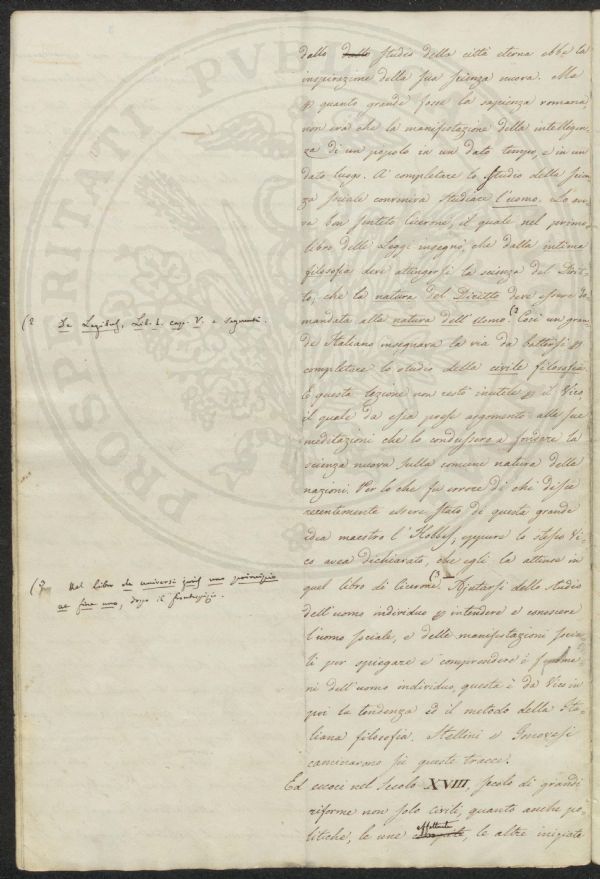 dallo dallo studio della città eterna ebbe la
inspirazione della sua scienza nuova. Ma
p quanto grande fosse la sapienza romana
non era che la manifestazione della intelligen
za di un popolo in un dato tempo, e in un
dato luogo. A completare lo studio della scien
za sociale conveniva studiare l'uomo. Lo ave
va ben sentito Cicerone, il quale nel primo
libro delle Leggi insegnò, che dalla intima
filosofia deve attingersi la scienza del Dirit
to, che la natura del Diritto deve essere do
mandata alla natura dell'uomo.(2 Così un gran
de Italiano insegnava la via da battersi p
completare lo studio della civile filosofia.
E questa lezione non restò inutile p il Vico,
il quale da essa prese argomento alle sue
meditazioni che lo condussero a fondare la
scienza nuova sulla comune natura delle
nazioni. Per lo che fu errore di chi disse
recentemente essere stato di questa grande
idea maestro l'Hobbes, eppure lo stesso Vi
co avea dichiarato, che egli la attinse in
quel libro di Cicerone.(3 Ajutarsi dello studio
dell'uomo individuo p intendere e conoscere
l'uomo sociale, e delle manifestazioni socia
li per spiegare e comprendere i fenome
ni dell'uomo individuo, questa è da Vico in
poi la tendenza ed il metodo della Ita
liana filosofia. Stellini e Genovesi
camminarono su queste traccie.
Ed eccoci nel secolo XVIII, secolo di grandi
riforme non solo civili, quanto anche po
litiche, le une effettuate, le altre iniziate
(2 De Legibus, Lib. I. cap. V. e seguenti.
(3 Nel libro de universi juris uno principio
et fine uno, dopo il frontespizio.
PROSPERITATI PVBL